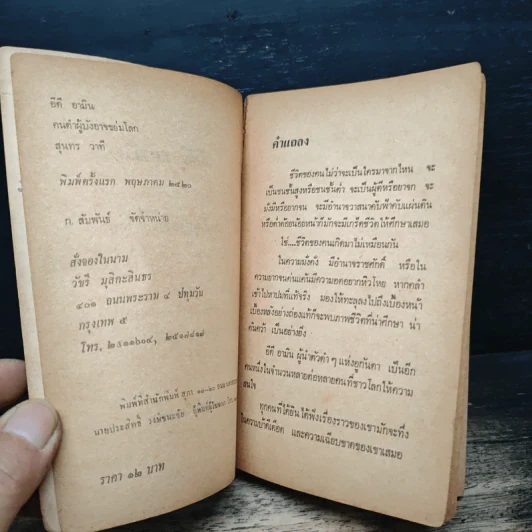 อีดี อามิน
คนดำผู้บังอาจขย่มโลก
สุนทร วาที
พิมพ์ครั้งแรก พฤษภาคม ๒๕๒๐
ก. สัมพันธ์ จัดจำหน่าย
สั่งจองในนาม
วัชรี มุสิกะสินธร
๔๐๑ ถนนพระราม ๔ ปทุมวัน
กรุงเทพ ๕
โทร.
พิมพ์ที่สำนักพิมพ์
นายประสิทธิ์
ราคา ๑๒ บาท
คำแถลง
ชีวิตของคนไม่ว่าจะเป็นใครมาจากไหน จะ
เป็นชนชั้นสูงหรือชนชั้นต่ำ จะเป็นผู้ดีหรือยาจก จะ
มั่งมีหรือยากจน จะมีอำนาจวาสนาคับฟ้าคับแผ่นดิน
หรือต่ำต้อยน้อยหน้าก็มักจะมีเกร็ดชีวิตให้ศึกษาเสมอ
ใช่....ชีวิตของคนเกิดมาไม่เหมือนกัน
ในความมั่งคั่ง มีอำนาจราชศักดิ์ หรือใน
ความยากจนค่นแค้นมีความอดอยากหิวโหย หากคลำ
เข้าไปหาปมที่แท้จริง มองให้ทะลุลงไปถึงเบื้องหน้า
เบื้องหลังอย่างถ่องแท้ก็จะพบภาพชีวิตที่น่าศึกษา น่า
ค้นคว้า เป็นอย่างยิ่ง
อีดี อามิน ผู้นำตัวดำ ๆ แห่งยูกันดา เป็นอีก
คนหนึ่งในจำนวนหลายต่อหลายคนที่ชาวโลกให้ความ
สนใจ
ทุกคนที่ได้ยินได้ฟังเรื่องราวของเขามักจะทึ่ง
ในความบ้าดีเดือด และความเฉียบขาดของเขาเสมอ